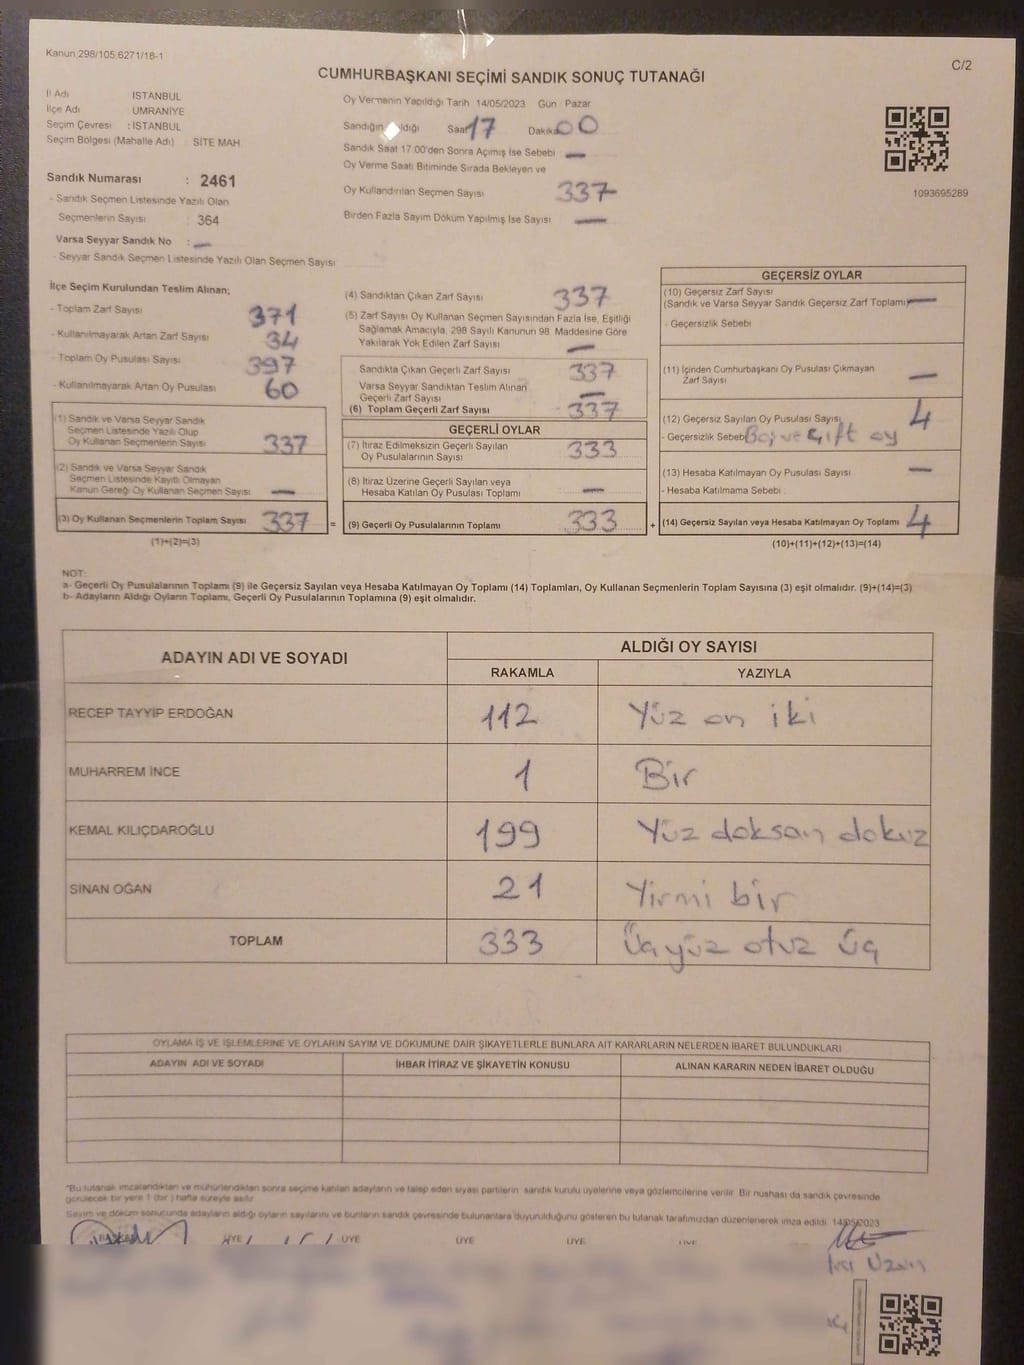 Kanun 298/105 6271/18-1
C/2
CUMHURBAŞKANI SEÇİMİ SANDIK SONUÇ TUTANAĞI
İl Adı İSTANBUL
İlçe Adı ÜMRANİYE
Seçim Çevresi : İSTANBUL
Seçim Bölgesi (Mahalle Adı) SİTE MAH
Sandık Numarası : 2461
- Sandık Seçmen Listesinde Yazılı Olan
Seçmenlerin Sayısı : 364
Varsa Seyyar Sandık No : —
- Seyyar Sandık Seçmen Listesinde Yazılı Olan Seçmen Sayısı
Oy Vermenin Yapıldığı Tarih 14/05/2023 Gün Pazar
Sandığın ldığı Saat 17 Dakika 00
Sandık Saat 17.00'den Sonra Açımış İse Sebebi —
Oy Verme Saati Bitiminde Sırada Bekleyen ve
Oy Kullandırılan Seçmen Sayısı 337
Birden Fazla Sayım Döküm Yapılmış İse Sayısı —
1093695289
İlçe Seçim Kurulundan Teslim Alınan;
- Toplam Zarf Sayısı 371
- Kullanılmayarak Artan Zarf Sayısı 34
- Toplam Oy Pusulası Sayısı 397
- Kullanılmayarak Artan Oy Pusulası 60
(1) Sandık ve Varsa Seyyar Sandık
Seçmen Listesinde Yazılı Olup
Oy Kullanan Seçmenlerin Sayısı 337
(2) Sandık ve Varsa Seyyar Sandık
Seçmen Listesinde Kayıtlı Olmayan
Kanun Gereği Oy Kullanan Seçmen Sayısı —
(3) Oy Kullanan Seçmenlerin Toplam Sayısı 337 =
(1)+(2)=(3)
(4) Sandıktan Çıkan Zarf Sayısı 337
(5) Zarf Sayısı Oy Kullanan Seçmen Sayısından Fazla İse, Eşitliği
Sağlamak Amacıyla, 298 Sayılı Kanunun 98. Maddesine Göre
Yakılarak Yok Edilen Zarf Sayısı —
Sandıkta Çıkan Geçerli Zarf Sayısı 337
Varsa Seyyar Sandıktan Teslim Alınan
Geçerli Zarf Sayısı —
(6) Toplam Geçerli Zarf Sayısı 337
GEÇERLİ OYLAR
(7) İtiraz Edilmeksizin Geçerli Sayılan
Oy Pusulalarının Sayısı 333
(8) İtiraz Üzerine Geçerli Sayılan veya
Hesaba Katılan Oy Pusulası Toplamı —
(9) Geçerli Oy Pusulalarının Toplamı 333 +
GEÇERSİZ OYLAR
(10) Geçersiz Zarf Sayısı
(Sandık ve Varsa Seyyar Sandık Geçersiz Zarf Toplamı) —
- Geçersizlik Sebebi
(11) İçinden Cumhurbaşkanı Oy Pusulası Çıkmayan
Zarf Sayısı —
(12) Geçersiz Sayılan Oy Pusulası Sayısı 4
- Geçersizlik Sebebi Boş ve Çift oy
(13) Hesaba Katılmayan Oy Pusulası Sayısı —
- Hesaba Katılmama Sebebi
(14) Geçersiz Sayılan veya Hesaba Katılmayan Oy Toplamı 4
(10)+(11)+(12)+(13)=(14)
NOT:
a- Geçerli Oy Pusulalarının Toplamı (9) ile Geçersiz Sayılan veya Hesaba Katılmayan Oy Toplamı (14) Toplamları, Oy Kullanan Seçmenlerin Toplam Sayısına (3) eşit olmalıdır. (9)+(14)=(3)
b- Adayların Aldığı Oyların Toplamı, Geçerli Oy Pusulalarının Toplamına (9) eşit olmalıdır.
ADAYIN ADI VE SOYADI ALDIĞI OY SAYISI
RAKAMLA YAZIYLA
RECEP TAYYİP ERDOĞAN 112 Yüz on iki
MUHARREM İNCE 1 Bir
KEMAL KILIÇDAROĞLU 199 Yüz doksan dokuz
SİNAN OĞAN 21 Yirmi bir
TOPLAM 333 Üç yüz otuz üç
OYLAMA İŞ VE İŞLEMLERİNE VE OYLARIN SAYIM VE DÖKÜMÜNE DAİR ŞİKAYETLERLE BUNLARA AİT KARARLARIN NELERDEN İBARET BULUNDUKLARI
ADAYIN ADI VE SOYADI İHBAR İTİRAZ VE ŞİKAYETİN KONUSU ALINAN KARARIN NEDEN İBARET OLDUĞU
*Bu tutanak imzalandıktan ve mühürlendikten sonra seçime katılan adayların ve talep eden siyasi partilerin sandık kurulu üyelerine veya gözlemcilerine verilir. Bir nushası da sandık çevresinde
görülecek bir yere 1 (bir) hafta süreyle asılır
Sayım ve döküm sonucunda adayların aldığı oyların sayılarını ve bunların sandık çevresinde bulunanlara duyurulduğunu gösteren bu tutanak tarafımızdan düzenlenerek imza edildi. 14/05/2023
BAŞKAN ÜYE ÜYE ÜYE ÜYE ÜYE